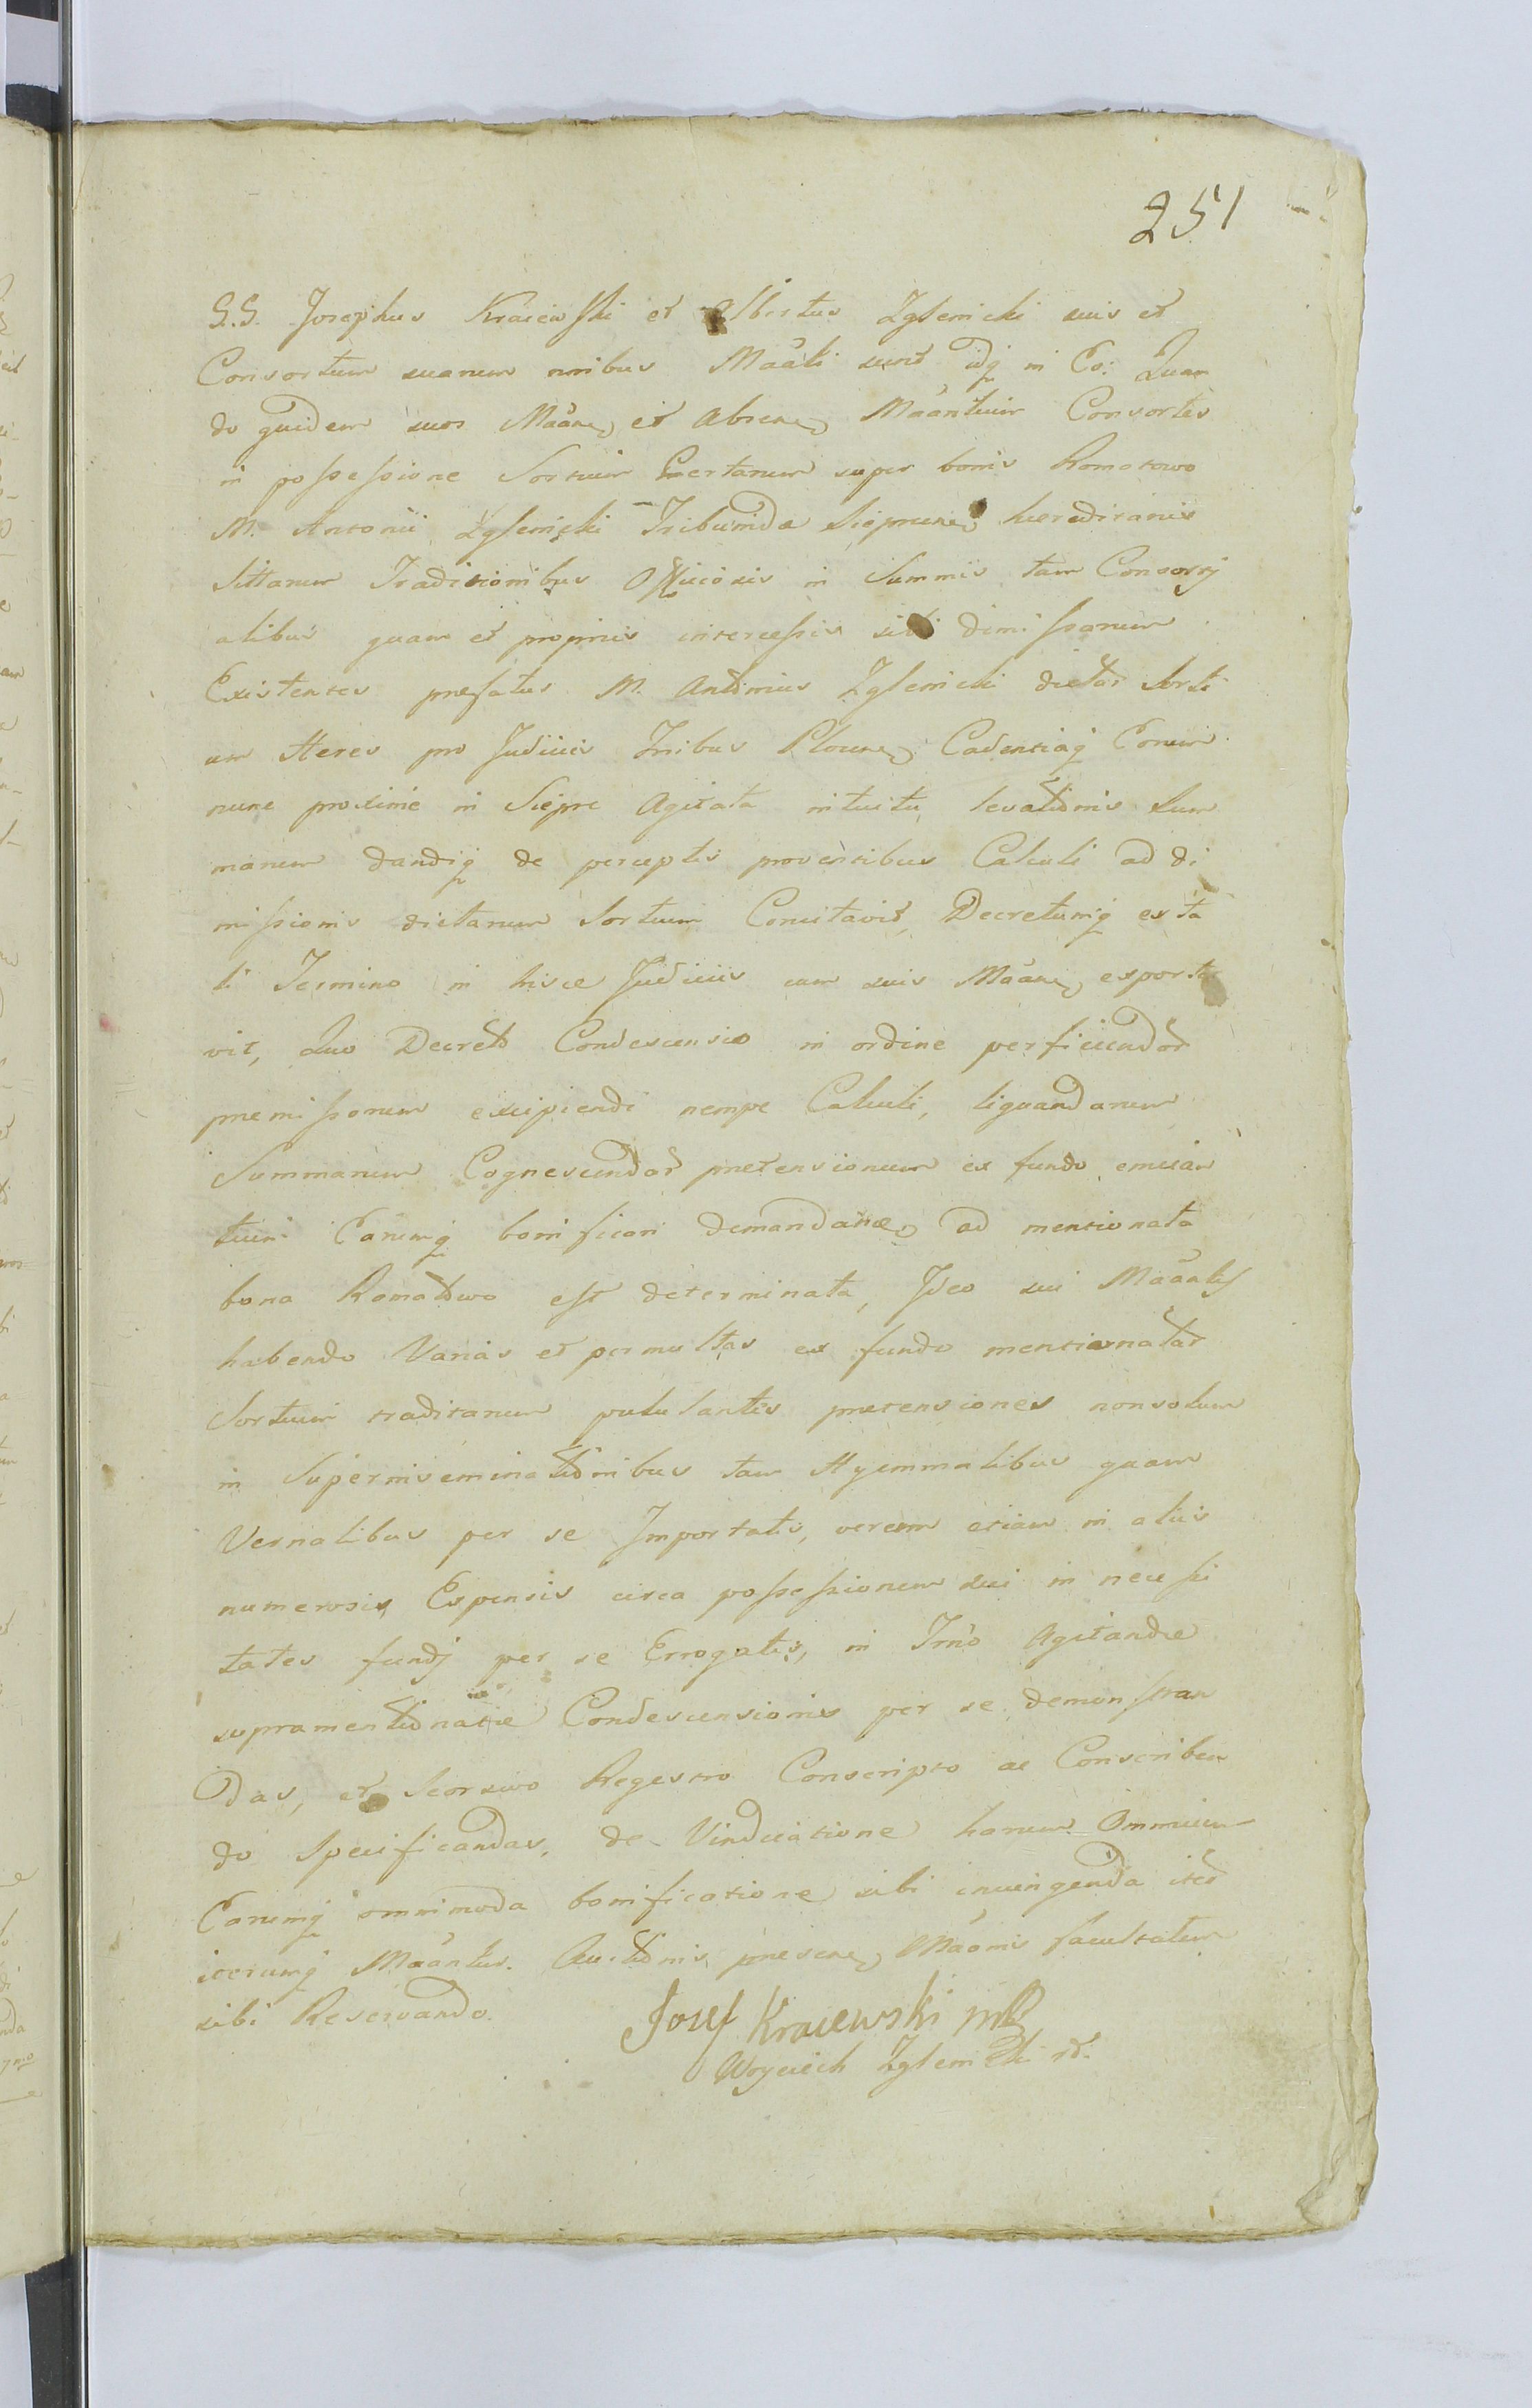 251
G.G. Josephus Kraiewski et Albertus Zglenicki suis et
Consortum suarum nnibus Maãti sunt idq in Eo: Quan
do quidem suos Maãne et absen Maãntium Consortes
in possessione Sortium Certarum super bonis Romotowo
M. Antonii Zglenicki Tribunida Sieprune hereditariis
Sittarum Traditionibus Officiosis in Summis tam Consorij
alibus quam et propriis intercessis sibi dimissarum
Existentes prefatus M. Antonius Zglenicki dictar Sorti
um Heres pro Judiciis Tribus Plocne Cadentiaq Eorum
nunc proxime in Siepre Agitata intuitu levationis Sum
marum dandiq de perceptis proventibus Calculi ad di
missionis dictarum Sortium Concitavit, Decretumq ex ta
li Termino in hisce Judiciis cum suis Maãne exporta
vit, quo Decreto Condescensio in ordine perficiendor
premissorum excipiendi nempe Calculi, liquandarum
Summarum Cognescendar pretensionum ex fundo emiãn
tium Earumq bonificari demandatae ad mentionata
bona Romatowo est determinata, Ideo sui Maãntes
habendo Varias et permultas ex fundo mentionatar
Sortium traditarum pululantes pretensiones nonsolum
in Superinseminationibus tam Hyemmalibus quam
Vernalibus per se Importatis, verum etiam in aliis
numerosis Expensis circa possessionem sui in necessi
tates fundj per se Errogatis, in Tmo Agitandae
supramentionatae Condescensionis per se demonstran
das, et Seorsivo Regestro Conscripto ac Conscriben
do Specificandas, de Vindicatione harum Omnium
Earumq omnimoda bonificatione sibi iniungenda iter
iterumq Maãntur. Auctionis presene Maãonis facultatem
sibi Reservando.
Josef Kraiewski mp
Woyciech Zglenicki